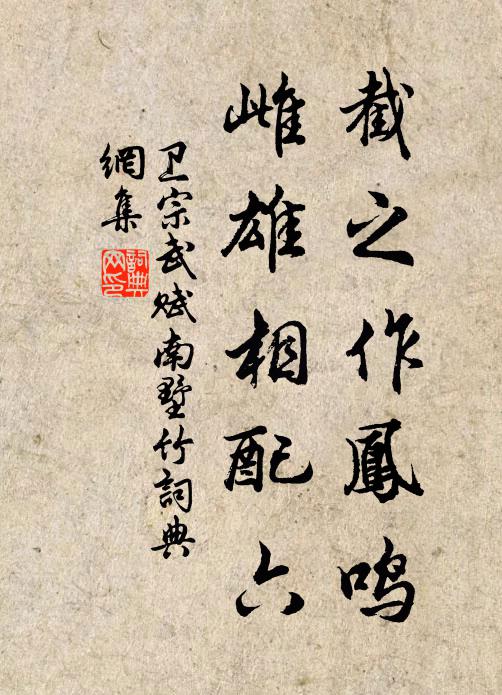 截之作鳳鸣
雌雄相配六
卫宗武赋南墅竹詞典
網集
詞典
网印